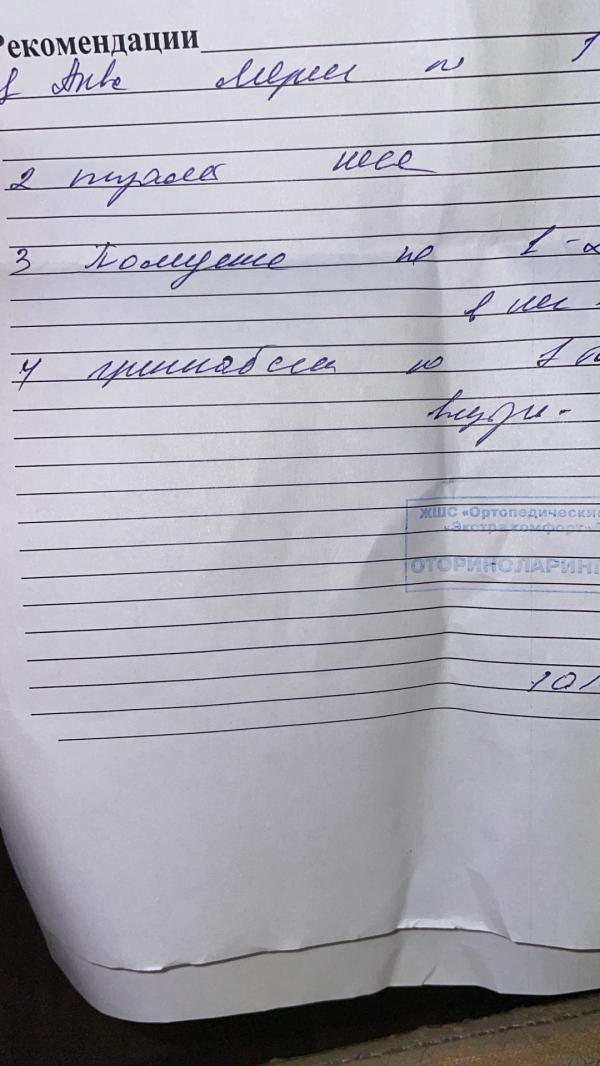 Рекомендации
1 Аква Мерис по 1
2 туалет носа
3 по 1-2
в нос
4 по 1
внутрь.
ЖШС «Ортопедический
«Экстра комфорт»
ОТОРИНОЛАРИНГ
10